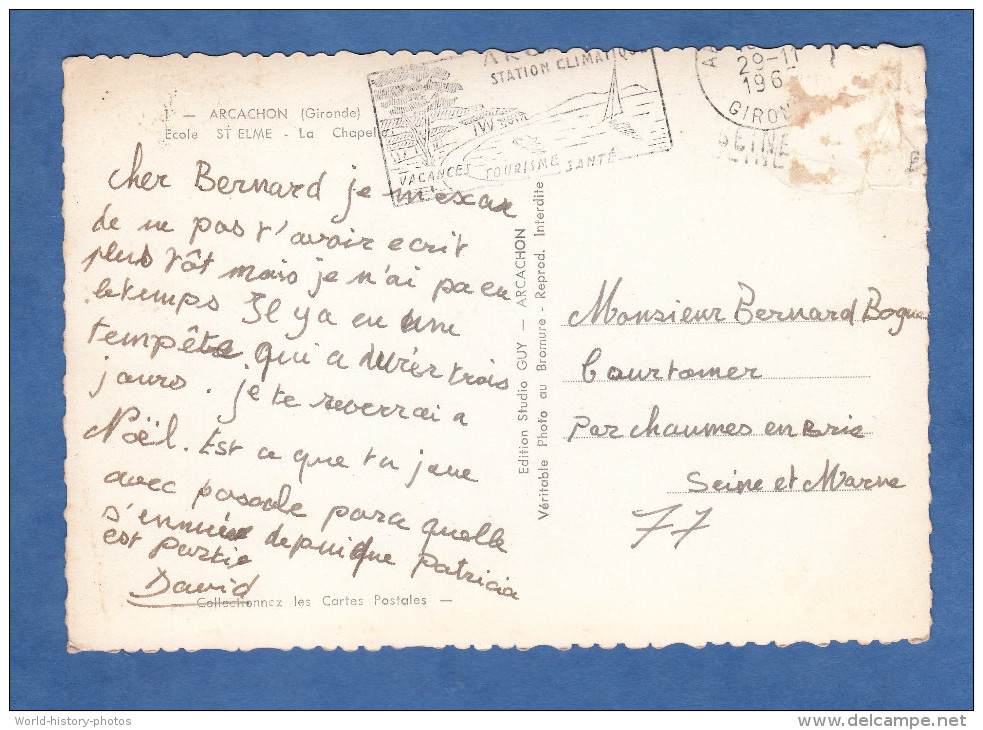 1 — ARCACHON (Gironde)
Ecole ST ELME - La Chapelle
STATION CLIMATIQUE
VACANCES TOURISME SANTÉ
29-11
196
GIRON
SEINE
SEINE
cher Bernard je m'excu
de ne pas t'avoir ecrit
plus tôt mais je n'ai pas eu
le temps Il y a eu une
tempête qui a durér trois
jours. je te reverrai a
Noël. Est ce que tu joue
avec pascale parce quelle
s'ennuie depuique Patricia
est partie
David
Collectionnez les Cartes Postales —
Edition Studio GUY — ARCACHON
Véritable Photo au Bromure - Reprod. Interdite
Monsieur Bernard
Courtomer
Par chaumes en Brie
Seine et Marne
77
World-history-photos
delcampe.net